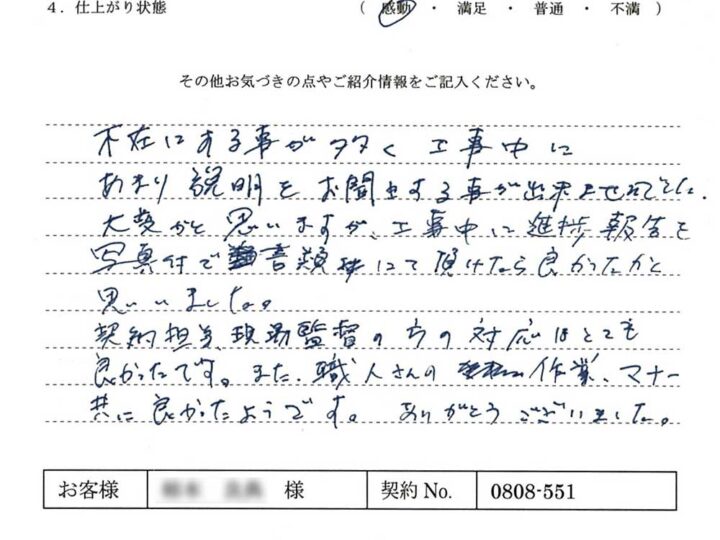 4．仕上がり状態 （ 感動 ・ 満足 ・ 普通 ・ 不満 ）
その他お気づきの点やご紹介情報をご記入ください。
不在にする事が多く 工事中に
あまり説明をお聞きする事が出来ませんでした。
大変かと思いますが、工事中に進捗報告を
写真付で 書類 にて頂けたら良かったかと
思いいました。
契約担当、現場監督の方の対応はとても
良かったです。また、職人さんの 作業、マナー
共に良かったようです。ありがとうございました。
お客様 様 契約 No. 0808-551